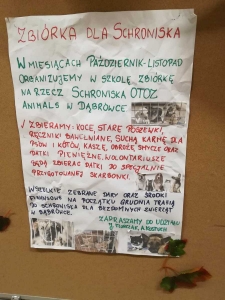 ZBIÓRKA DLA SCHRONISKA
W MIESIĄCACH PAŹDZIERNIK-LISTOPAD
ORGANIZUJEMY W SZKOLE ZBIÓRKĘ
NA RZECZ SCHRONISKA OTOZ
ANIMALS W DĄBRÓWCE.
ZBIERAMY: KOCE, STARE POSZEWKI,
RĘCZNIKI BAWEŁNIANE, SUCHĄ KARMĘ DLA
PSÓW I KOTÓW, KASZĘ, OBROŻE, SMYCZE ORAZ
DATKI PIENIĘŻNE. WOLONTARIUSZE
BĘDĄ ZBIERAĆ DATKI DO SPECJALNIE
PRZYGOTOWANEJ SKARBONKI.
WSZELKIE ZEBRANE DARY ORAZ ŚRODKI
PIENIĘŻNE NA POCZĄTKU GRUDNIA TRAFIĄ
DO SCHRONISKA DLA BEZDOMNYCH ZWIERZĄT
W DĄBRÓWCE.
ZAPRASZAMY DO UDZIAŁU